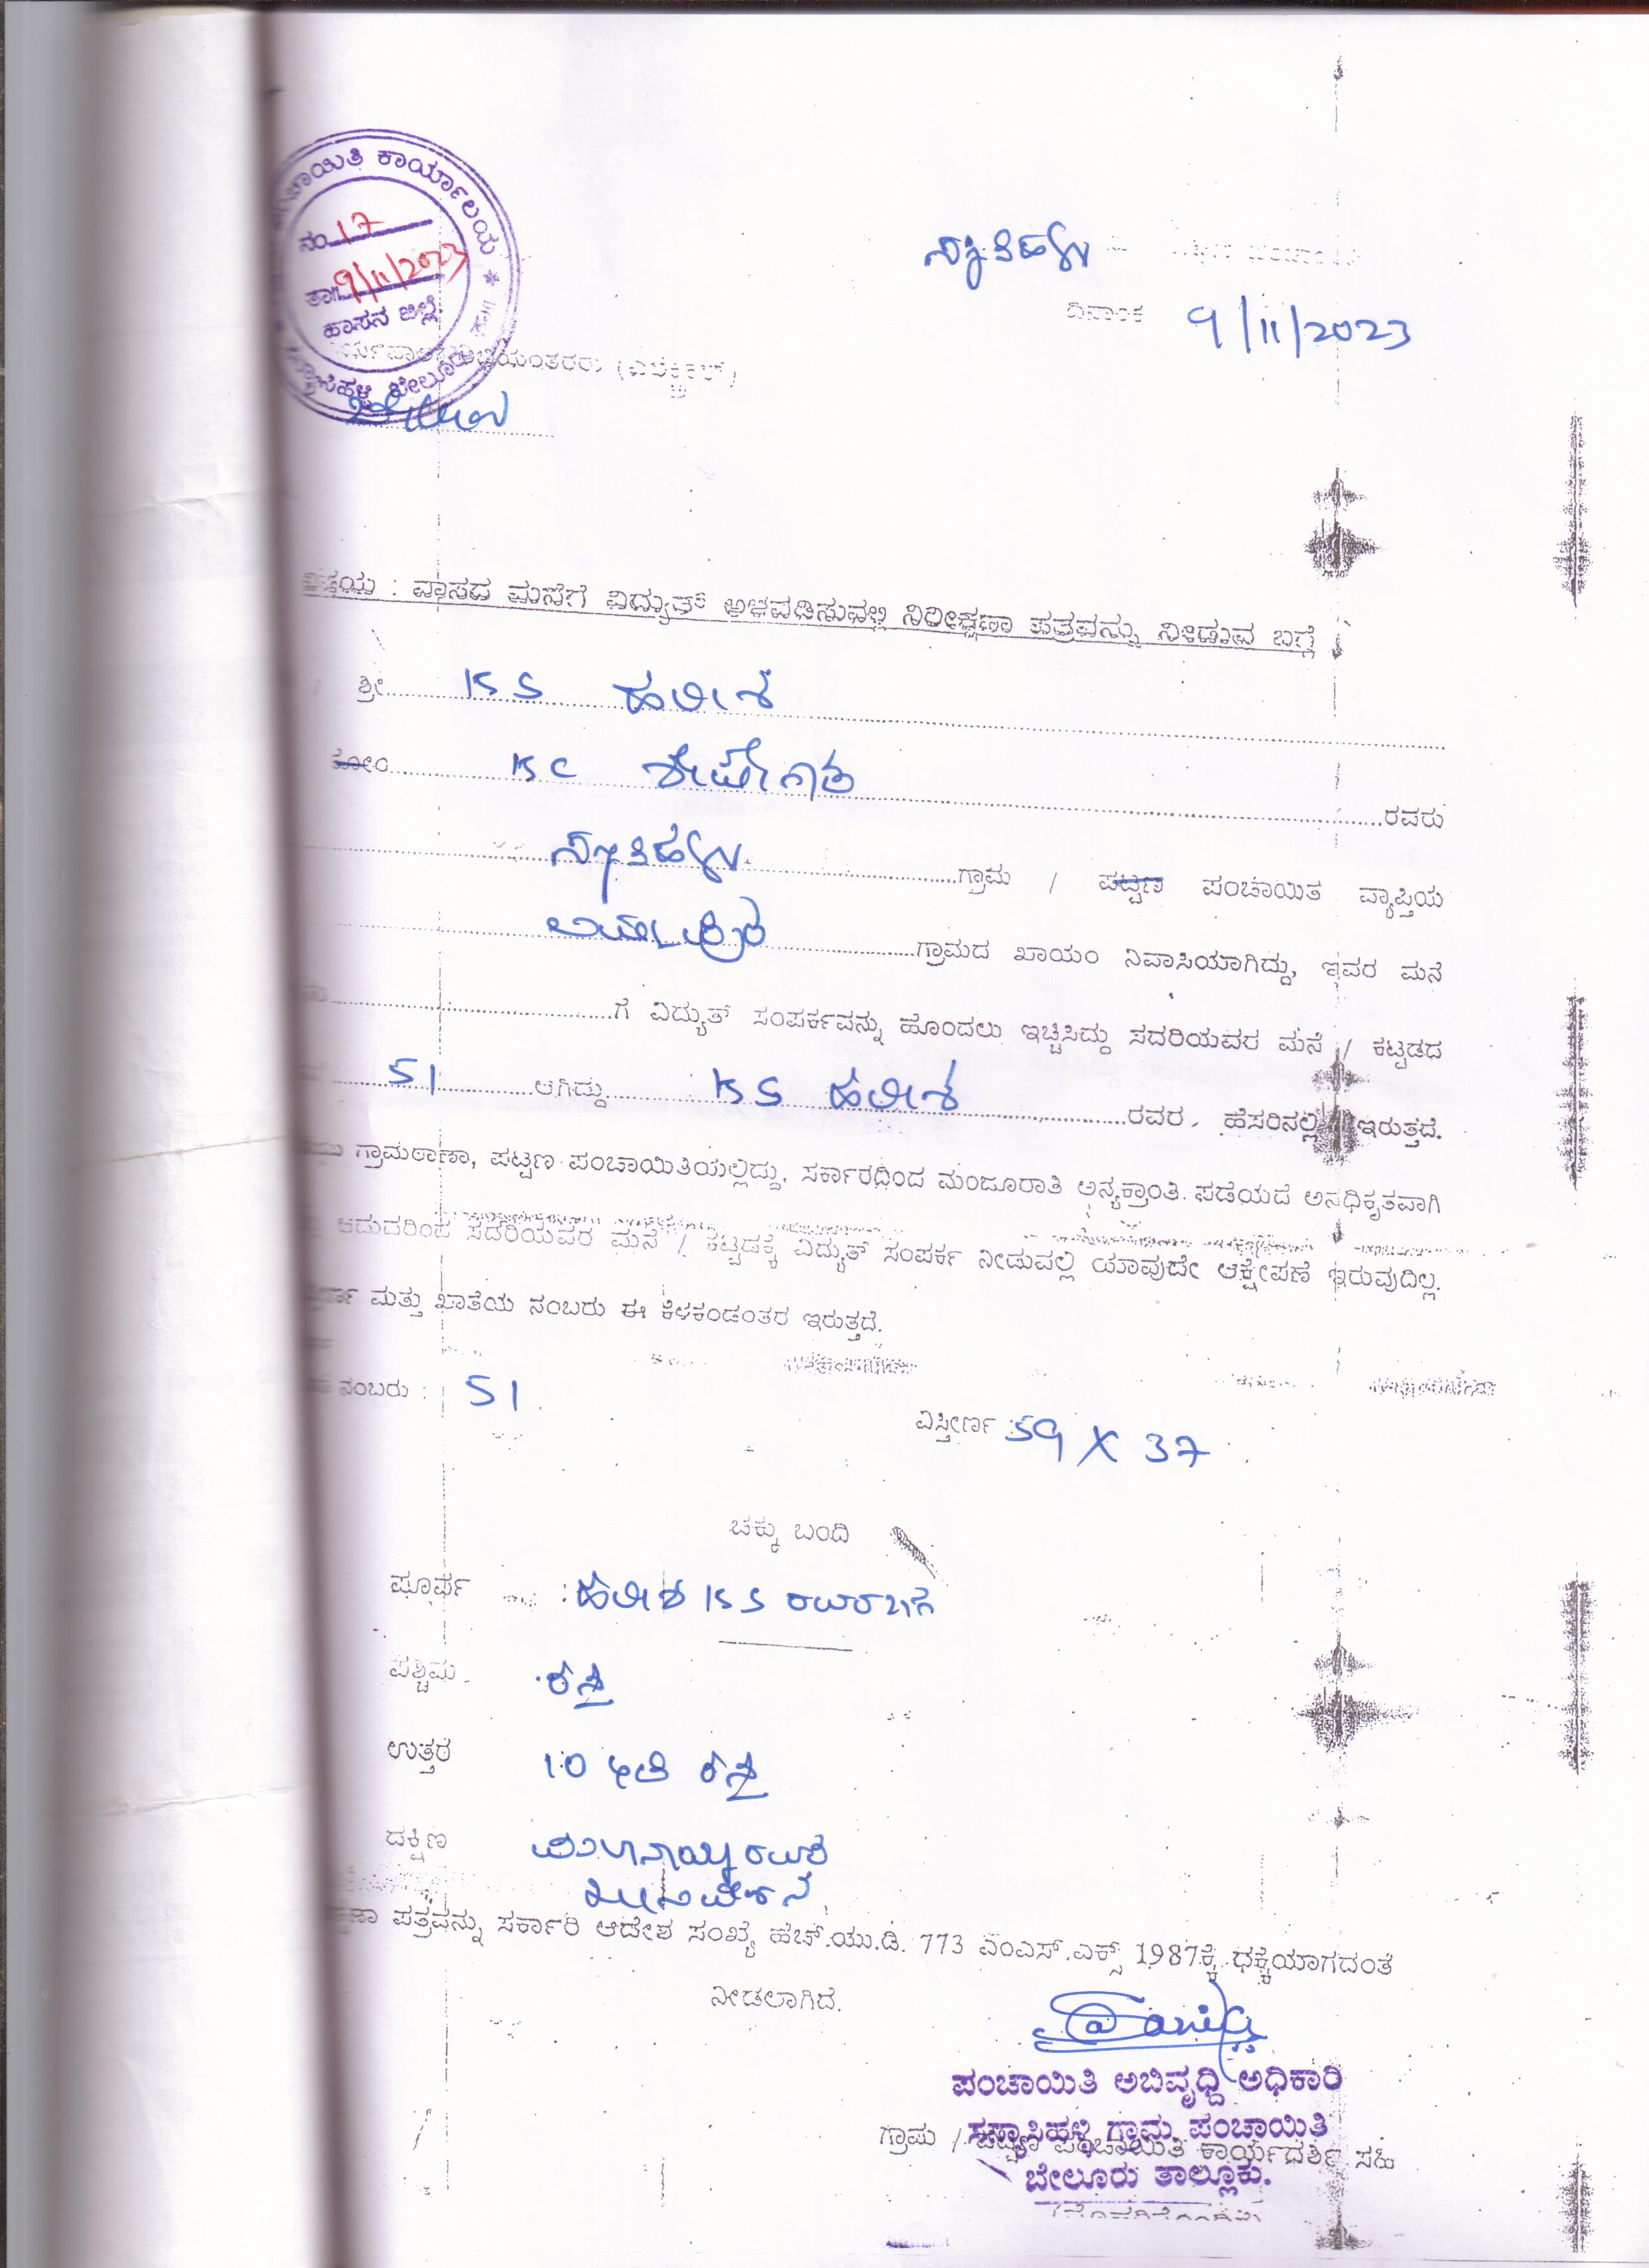 ಚಾಯಿತಿ ಕಾರ್ಯಾಲಯ *
ನಂ 17
ತಾ 9/11/2023
ಹಾಸನ ಜಿಲ್ಲೆ.
ಬೇಲೂರು
ದಿನಾಂಕ 9/11/2023
ಅಭಿಯಂತರರು (ಎಲೆಕ್ಟ್ರಿಕಲ್)
ಬೇಲೂರು
ವಿಷಯ : ವಾಸದ ಮನೆಗೆ ವಿದ್ಯುತ್ ಅಳವಡಿಸುವಲ್ಲಿ ನಿರೀಕ್ಷಣಾ ಪತ್ರವನ್ನು ನೀಡುವ ಬಗ್ಗೆ
ಶ್ರೀ KS ಹರೀಶ
ಕೋಂ KC ರವರು
ಗ್ರಾಮ / ಪಟ್ಟಣ ಪಂಚಾಯಿತ ವ್ಯಾಪ್ತಿಯ
ಗ್ರಾಮದ ಖಾಯಂ ನಿವಾಸಿಯಾಗಿದ್ದು, ಇವರ ಮನೆ
ಗೆ ವಿದ್ಯುತ್ ಸಂಪರ್ಕವನ್ನು ಹೊಂದಲು ಇಚ್ಚಿಸಿದ್ದು ಸದರಿಯವರ ಮನೆ / ಕಟ್ಟಡದ
51 ಆಗಿದ್ದು KS ಹರೀಶ ರವರ ಹೆಸರಿನಲ್ಲಿ ಇರುತ್ತದೆ.
ಗ್ರಾಮಠಾಣಾ, ಪಟ್ಟಣ ಪಂಚಾಯಿತಿಯಲ್ಲಿದ್ದು, ಸರ್ಕಾರದಿಂದ ಮಂಜೂರಾತಿ ಅನ್ಯಕ್ರಾಂತಿ ಪಡೆಯದೆ ಅನಧಿಕೃತವಾಗಿ
ಆದುದರಿಂದ ಸದರಿಯವರ ಮನೆ / ಕಟ್ಟಡಕ್ಕೆ ವಿದ್ಯುತ್ ಸಂಪರ್ಕ ನೀಡುವಲ್ಲಿ ಯಾವುದೇ ಆಕ್ಷೇಪಣೆ ಇರುವುದಿಲ್ಲ.
ಮತ್ತು ಖಾತೆಯ ನಂಬರು ಈ ಕೆಳಕಂಡಂತರ ಇರುತ್ತದೆ.
ನಂಬರು : 51
ವಿಸ್ತೀರ್ಣ 59 X 37
ಚಕ್ಕು ಬಂದಿ
ಪೂರ್ವ : ಹರೀಶ KS ರವರ
ಪಶ್ಚಿಮ ರಸ್ತೆ
ಉತ್ತರ 10 ಅಡಿ ರಸ್ತೆ
ದಕ್ಷಿಣ
ಪತ್ರವನ್ನು ಸರ್ಕಾರಿ ಆದೇಶ ಸಂಖ್ಯೆ ಹೆಚ್.ಯು.ಡಿ. 773 ಎಂಎಸ್.ಎಕ್ಸ್ 1987ಕ್ಕೆ ಧಕ್ಕೆಯಾಗದಂತೆ
ನೀಡಲಾಗಿದೆ.
ಪಂಚಾಯಿತಿ ಅಬಿವೃಧ್ದಿ ಅಧಿಕಾರಿ
ಗ್ರಾಮ ಪಂಚಾಯಿತಿ
ಗ್ರಾಮ / ಪಟ್ಟಣ ಪಂಚಾಯಿತಿ ಕಾರ್ಯದರ್ಶಿ ಸಹಿ
ಬೇಲೂರು ತಾಲ್ಲೂಕು.